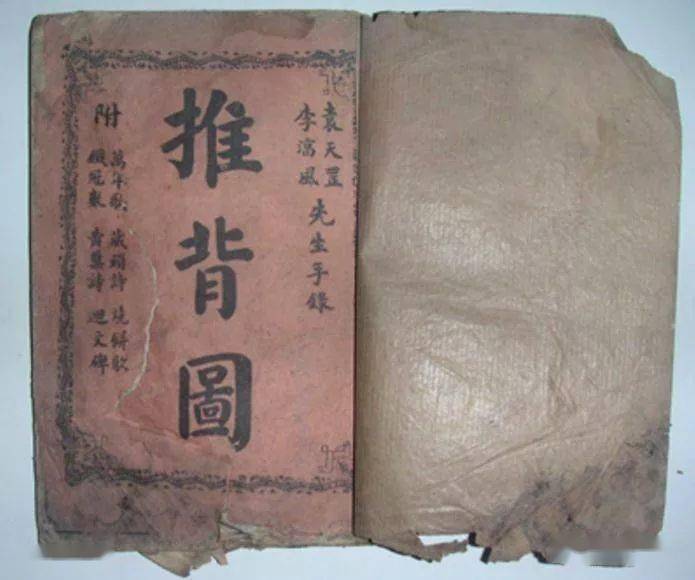 袁天罡
李淳風
先生手錄
推背圖
附
萬年歌 歲頭詩 燒餅歌
鐵冠數 黃蘗詩 迴文碑